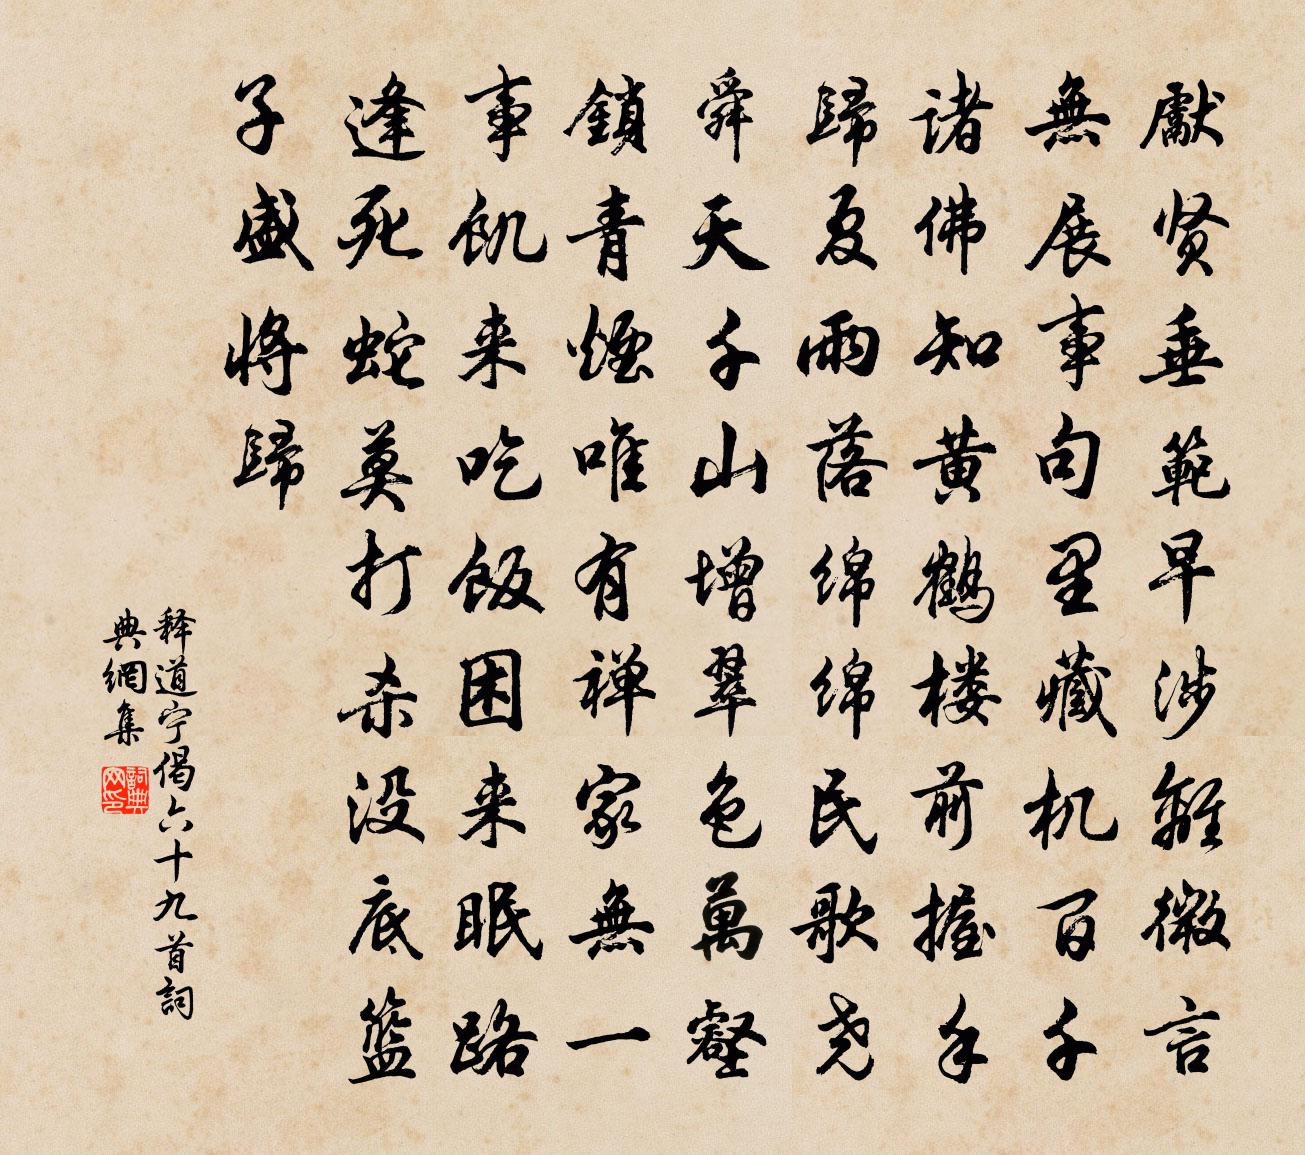 獻贤垂範早涉離微言
無展事句里藏机百千
諸佛知黄鶴楼前握手
歸夏雨落绵绵民歌尧
舜天千山增翠色萬壑
鎖青煙唯有禅家無一
事飢来吃飯困来眠路
逢死蛇莫打杀没底篮
子盛将歸
释道宁偈六十九首詞
典網集
詞典网印